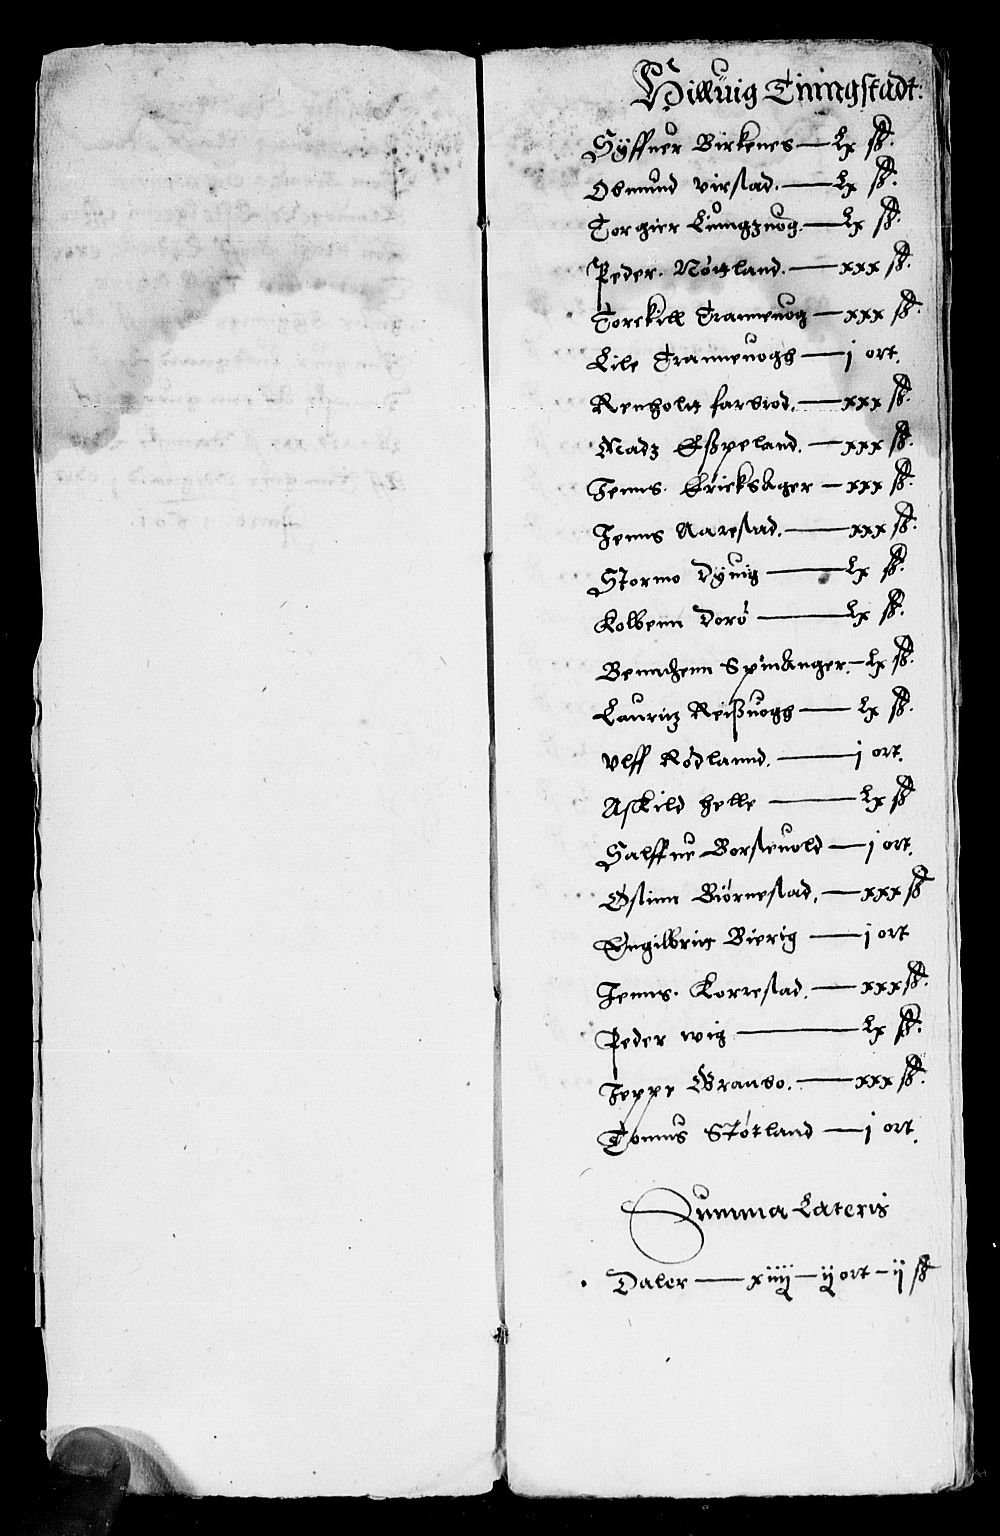 Hilluig Tinngstadt.
Syffuer Birkenes — Lx ß.
Osmund Virstad. — Lx ß.
Torgier Lungzuog. — Lx ß.
Peder. Nøttland. — xxx ß.
Torckill Tranneuog — xxx ß.
Eile Tranneuogh — j ort.
Renholtt farsiod. — xxx ß.
Madz Eßpeland. — xxx ß.
Jenns. Ericksager — xxx ß.
Jenns Aarestad. — xxx ß.
Stormo Dyuig — Lx ß.
Kolbenn Dorø — Lx ß.
Benndzenn Spindanger. — Lx ß.
Lauritz Reißuogh — Lx ß.
Vlff Rødlannd. — j ort.
Askild Helle — Lx ß
Halffue Borsteuold — j ort.
Østinn Biørnestad. — xxx ß
Engilbritt Bierig — j ort
Jenns. Korrestad. — xxx ß.
Peder wig — Lx ß.
Jeppe Branso. — xxx ß.
Tomus Støtland — j ort.
Summa Lateris
Daler — xiiij — ij ort — ij ß